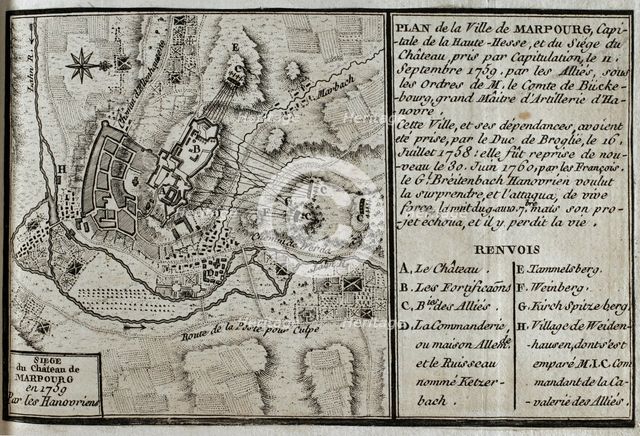 PLAN de la Ville de MARPOURG, Capi-
tale de la Haute-Hesse, et du Siége du
Château, pris par Capitulation, le 11.
Septembre 1759, par les Alliés, sous
les Ordres de M. le Comte de Bücke-
bourg, grand Maitre d'Artillerie d'Ha-
novre.
Cette Ville, et ses dépendances, avoient
été prise, par le Duc de Broglie, le 16.
Juillet 1758: elle fût reprise de nou-
veau le 30. Juin 1760, par les François.
le Gl. Breitenbach Hanovrien voulut
la surprendre, et l'attaqua, de vive
force, la nuit du 9. au 10. 7bre. mais son pro-
jet échoua, et il y perdit la vie.
RENVOIS
A. Le Château.
B. Les Fortifications
C. Bies des Alliés.
D. La Commanderie,
ou maison Allemde.
et le Ruisseau
nommé Ketzer-
bach.
E. Tammelsberg.
F. Weinberg.
G. Kirch Spitzeberg.
H. Village de Weiden-
hausen, dont s'est
emparé M. I. C. Com
mandant de la Ca-
valerie des Alliés.
SIEGE
du Château de
MARPOURG
en 1759
Par les Hanovriens
Lahn R.
Marbach
Route de la Poste pour
E
C
B
H
G
heritage
Heritage
Images